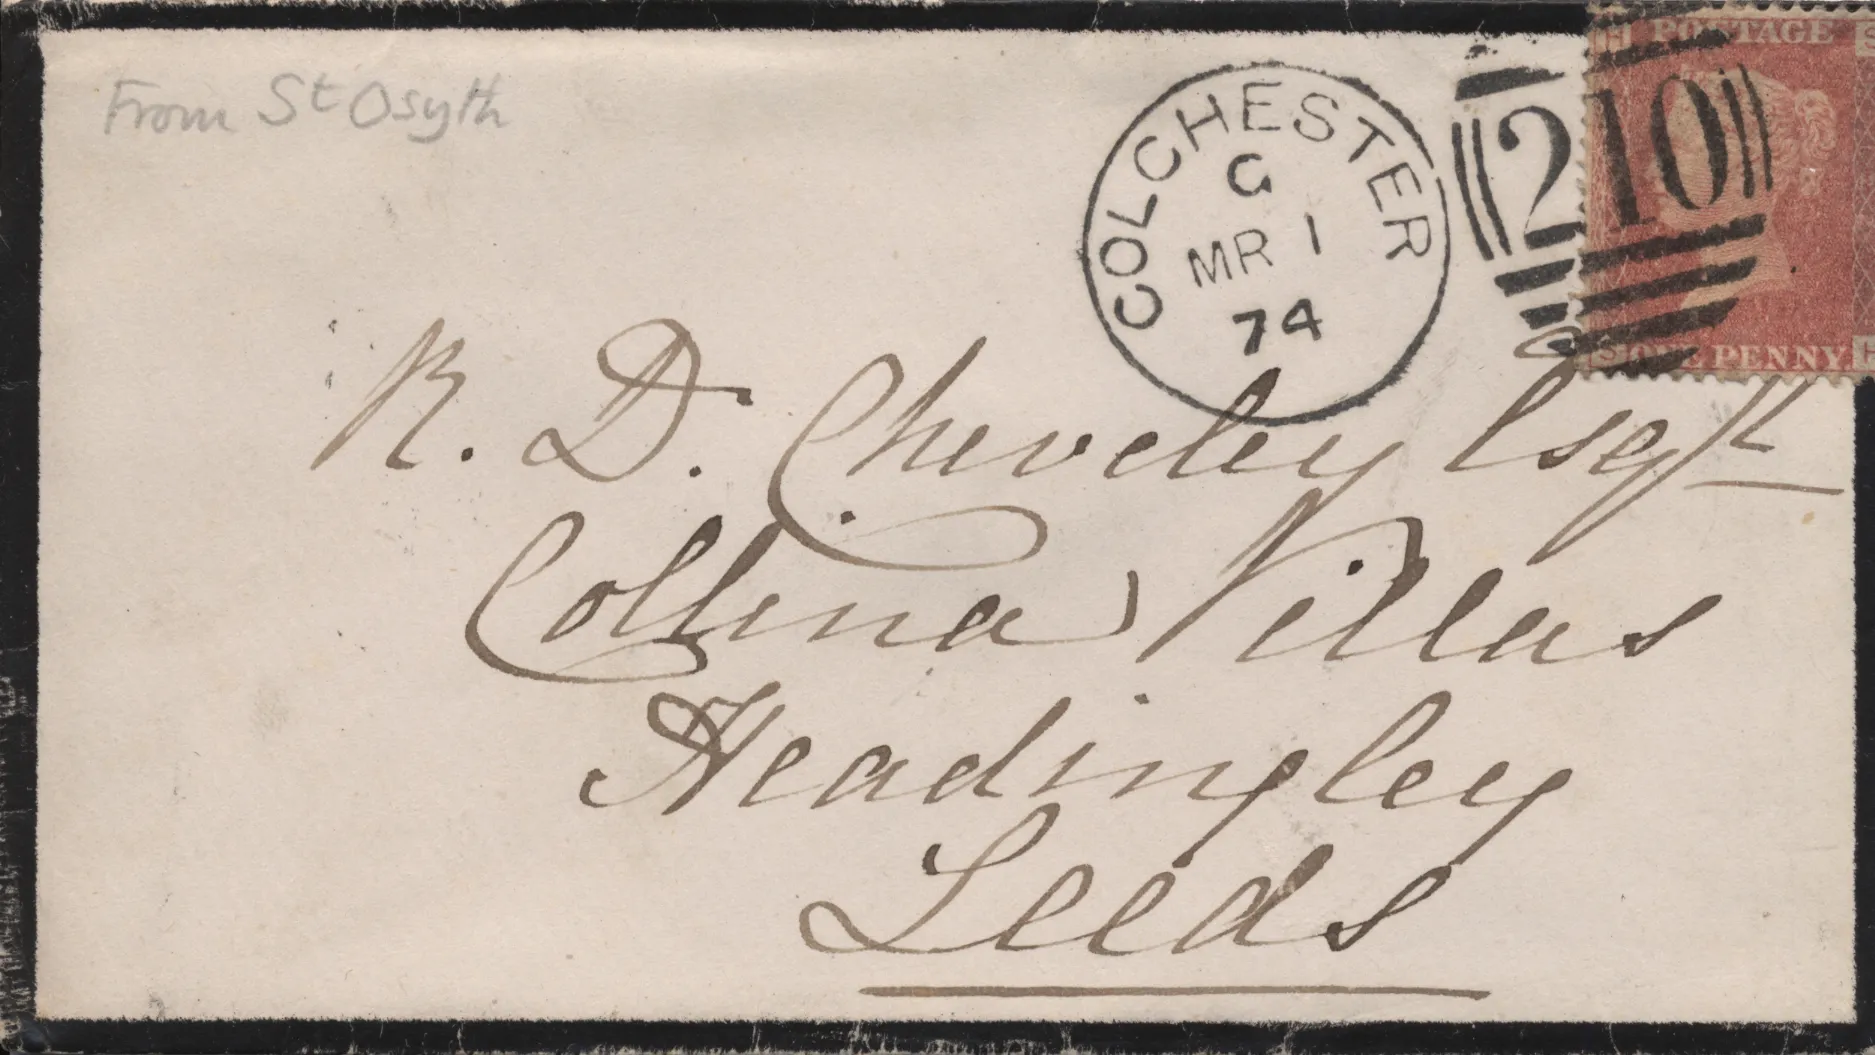 From St Osyth
COLCHESTER
G
MR 1
74
210
H POSTAGE S
S ONE PENNY. H
R. D. Cheveley Esqre
Collina Villas
Headingley
Leeds